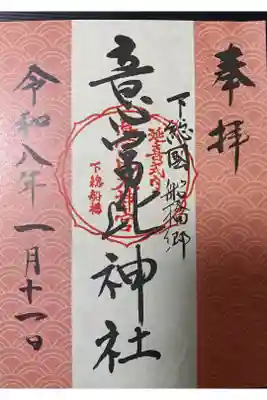 奉拝
下総國船橋郷
意富比神社
延喜式内
下総船橋
令和八年一月十一日